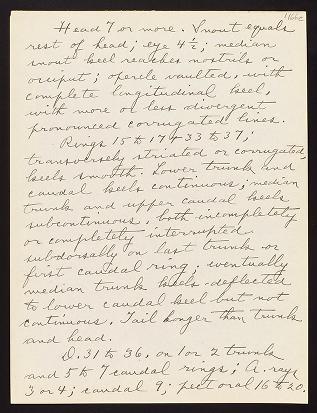 1166c
Head 7 or more. Snout equals
rest of head; eye 4½; median
snout keel reaches nostrils or
occiput; opercle vaulted, with
complete longitudinal keel,
with more or less divergent
pronounced corrugated lines.
Rings 15 to 17 + 33 to 37,
transversely striated or corrugated,
keels smooth. Lower trunk and
caudal keels continuous; median
trunk and upper caudal keels
subcontinuous, both incompletely
or completely interrupted
subdorsally on last trunk or
first caudal ring; eventually
median trunk keels deflected
to lower caudal keel but not
continuous. Tail longer than trunk
and head.
D. 31 to 36, on 1 or 2 trunk
and 5 to 7 caudal rings; A. rays
3 or 4; caudal 9; pectoral 16 to 20.